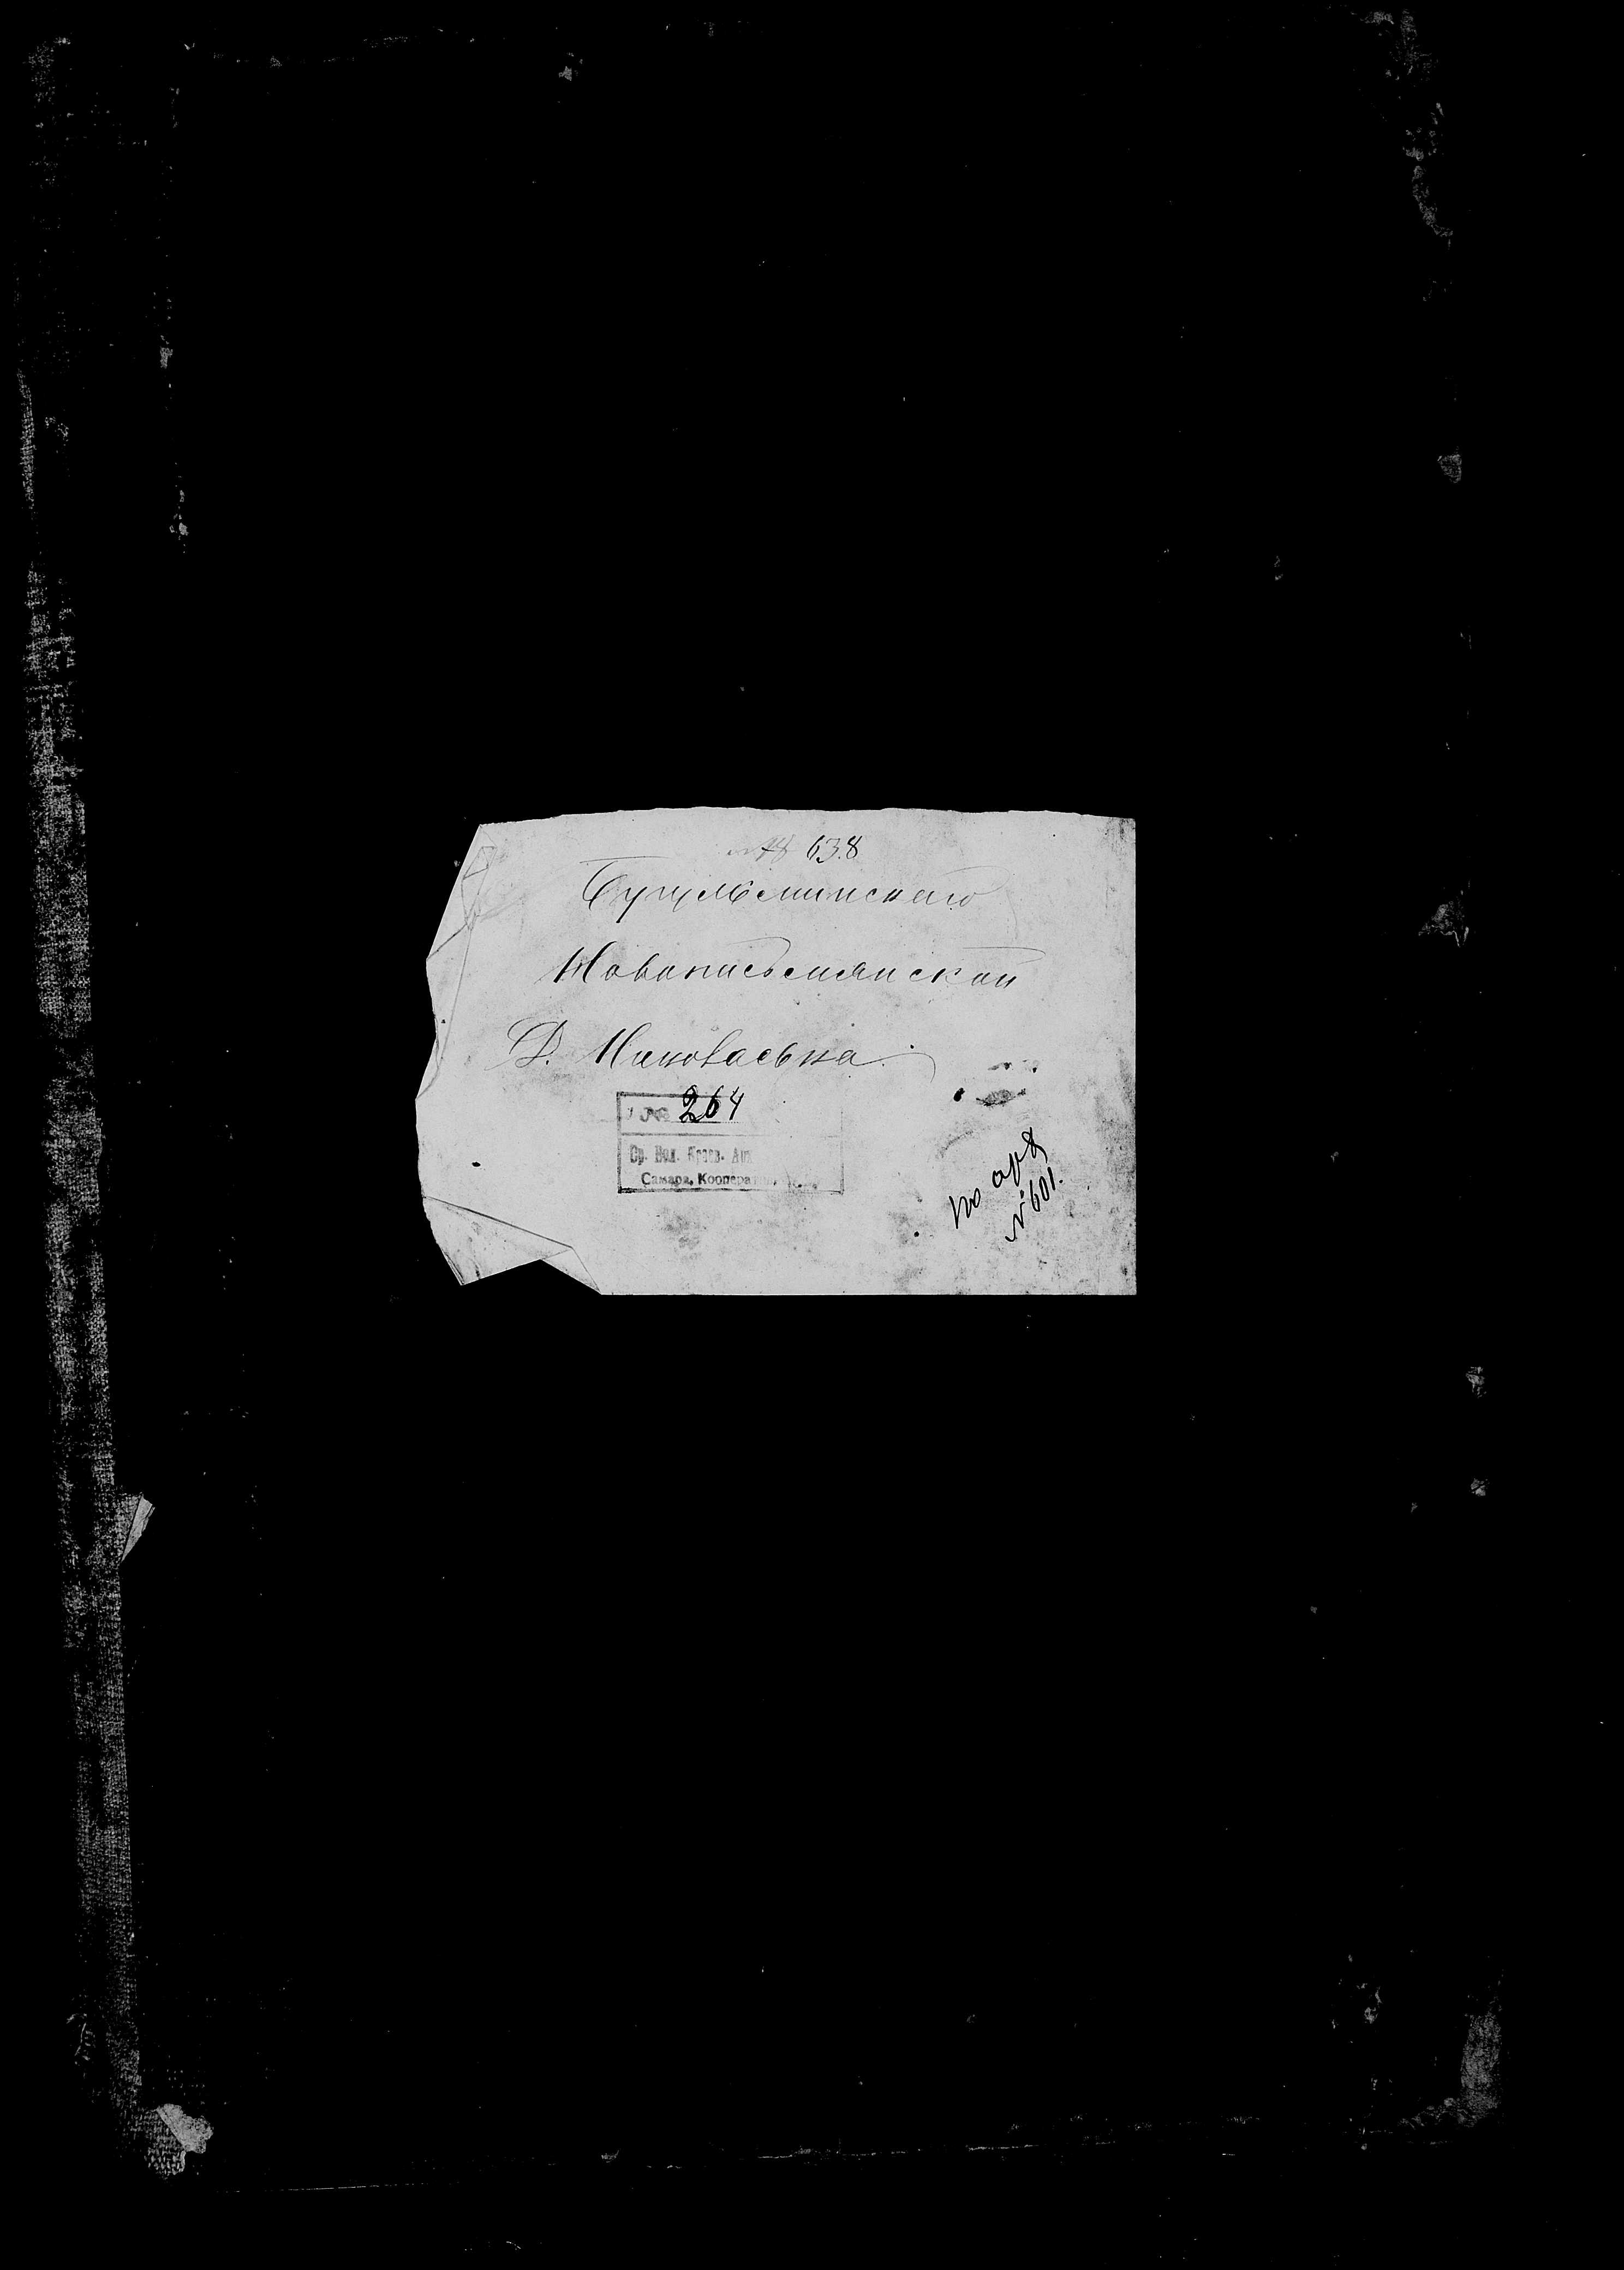 638
Бугульминскаго
Новописьмянской
Д. Николаевка.
264
Ср. Вол. Краев. Арх
Самара, Коопера
по арх
№ 601.